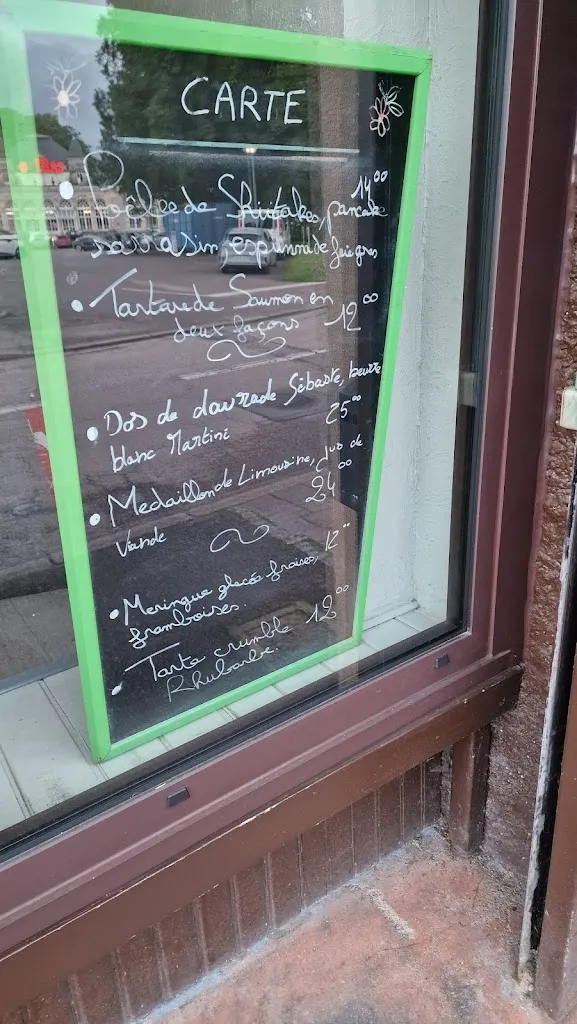 CARTE
14⁰⁰
Poêlée de Shiitakes, pancake
sarrasin, espuma de foie gras
Tartare de Saumon en
deux façons 12⁰⁰
Dos de daurade Sébaste, beurre
blanc Martini 25⁰⁰
Medaillon de Limousine, jus de
Viande 24⁰⁰
Meringue glacée fraises, 12⁰⁰
framboises.
Tarte crumble 12⁰⁰
Rhubarbe.